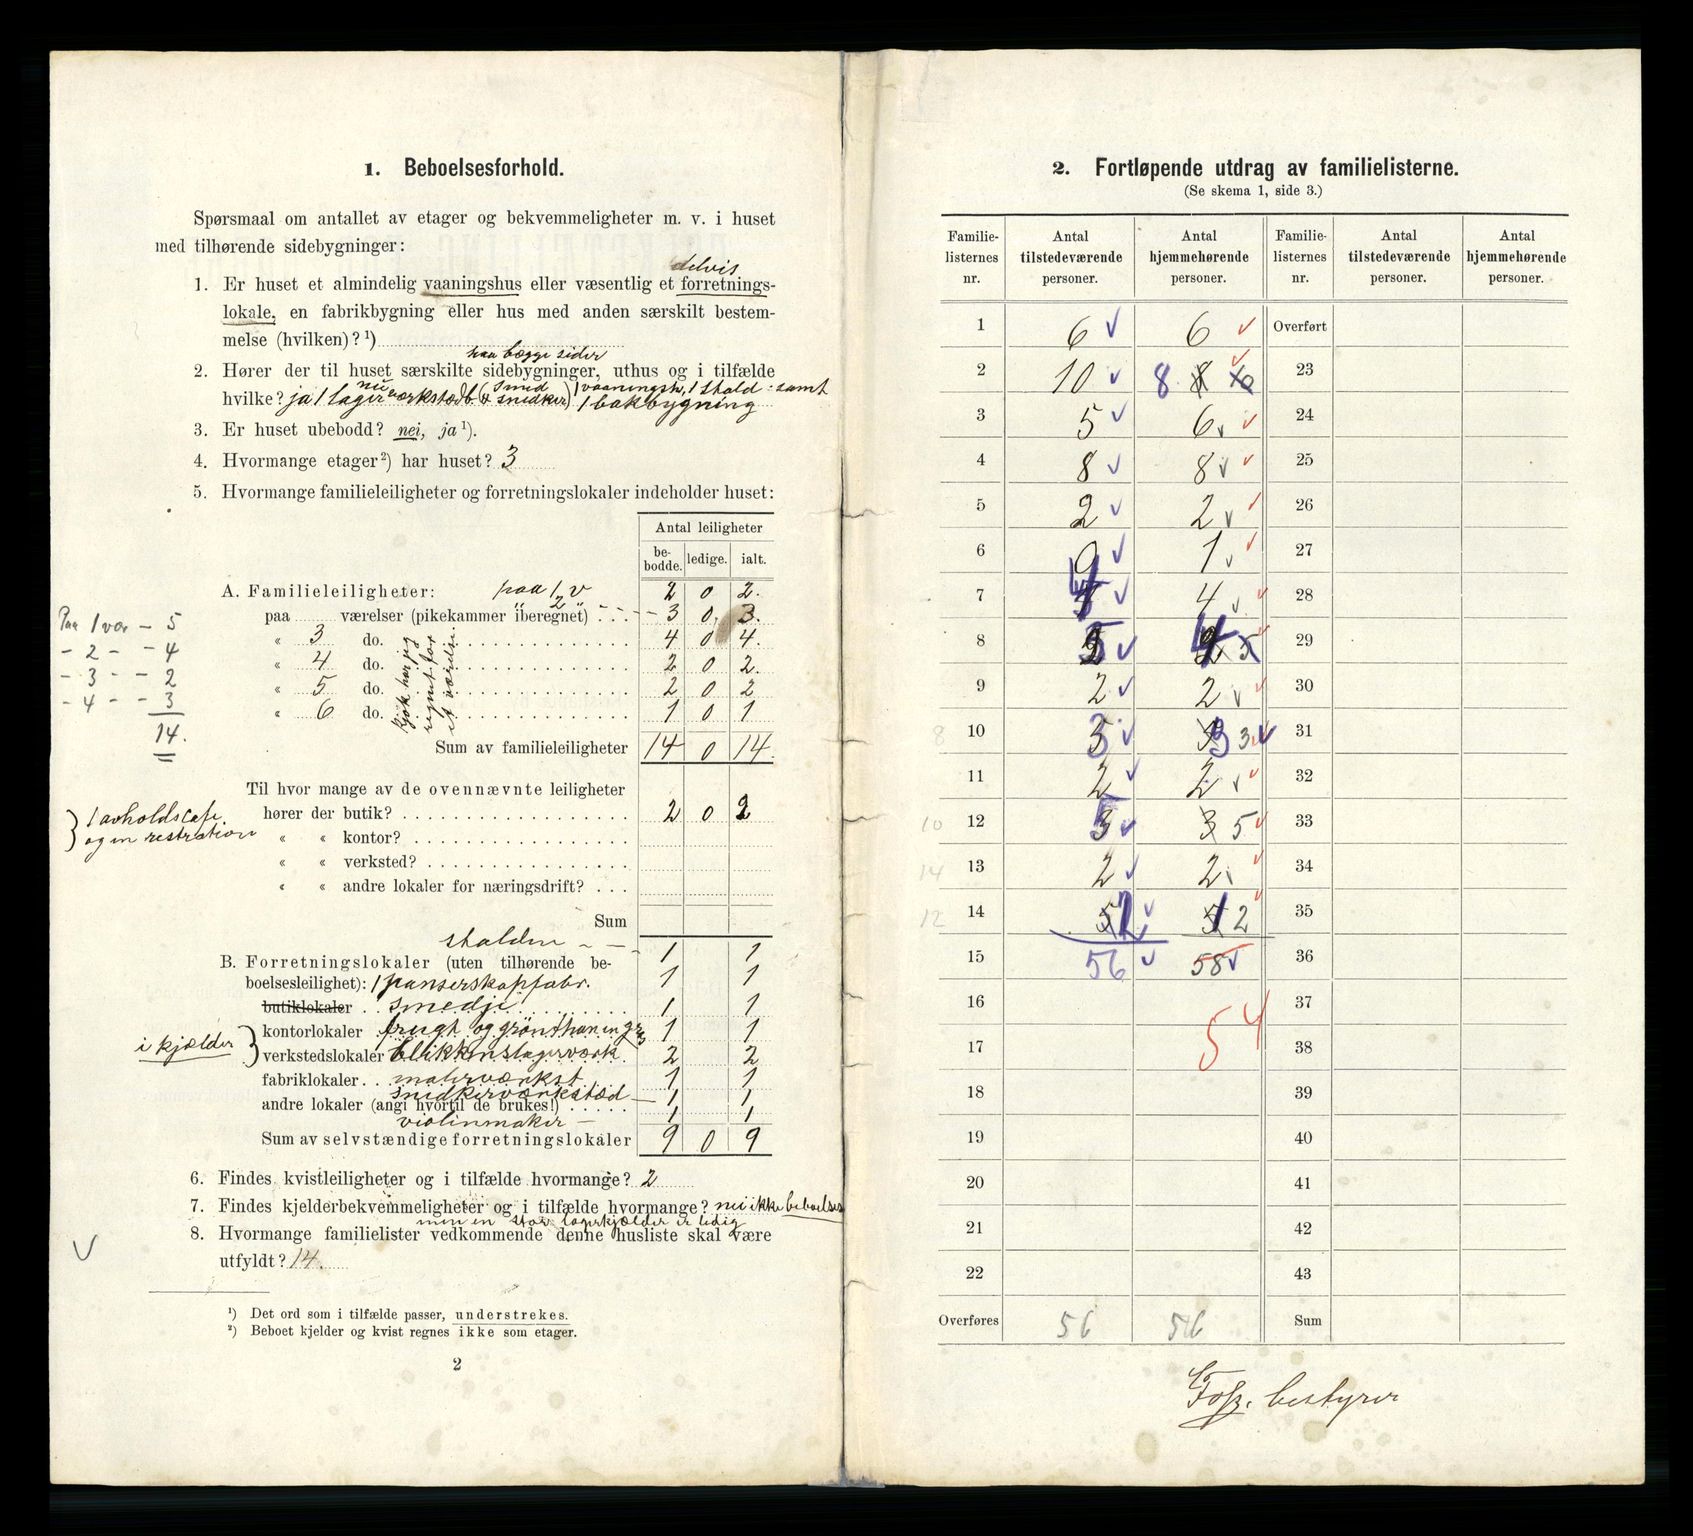 1. Beboelsesforhold.
Spørsmaal om antallet av etager og bekvemmeligheter m. v. i huset
med tilhørende sidebygninger:
delvis
1. Er huset et almindelig vaaningshus eller væsentlig et forretnings-
lokale, en fabrikbygning eller hus med anden særskilt bestem-
melse (hvilken)? ¹)
paa begge sider
2. Hører der til huset særskilte sidebygninger, uthus og i tilfælde
hvilke? ja 1 lager nu værkstedb (smed & snidker) 1 vaaningsh, 1 stald samt
1 bakbygning
3. Er huset ubebodd? nei, ja ¹).
4. Hvormange etager ²) har huset? 3
5. Hvormange familieleiligheter og forretningslokaler indeholder huset:
Antal leiligheter
be-bodde. ledige. ialt.
A. Familieleiligheter: paa 1 v 2 0 2.
paa værelser (pikekammer iberegnet) " 2 " 3 0 3.
" 3 do. 4 0 4.
" 4 do. 2 0 2.
" 5 do. 2 0 2
" 6 do. 1 0 1
kjøk har jeg
regnet for
et værelse
Sum av familieleiligheter 14 0 14.
Paa 1 vær - 5
- 2 - - 4
- 3 - - 2
- 4 - - 3
14.
Til hvor mange av de ovennævnte leiligheter
hører der butik? 2 0 2
" " kontor?
" " verksted?
" " andre lokaler for næringsdrift?
Sum
1 avholdscafe
og en restration
stalden 1 1
B. Forretningslokaler (uten tilhørende be-
boelsesleilighet): 1 panserskapfabr. 1 1
butiklokaler smedje 1 1
kontorlokaler frugt og grønthan en gros 1 1
verkstedslokaler blikkenslagerværk 2 2
fabriklokaler malerværkst 1 1
snidkerværksted 1 1
andre lokaler (angi hvortil de brukes!)
violinmaker 1 1
Sum av selvstændige forretningslokaler 9 0 9
i kjælder
6. Findes kvistleiligheter og i tilfælde hvormange? 2
7. Findes kjelderbekvemmeligheter og i tilfælde hvormange? nei ikke beboelses
men en stor lagerkjælder er ledig
8. Hvormange familielister vedkommende denne husliste skal være
utfyldt? 14.
¹) Det ord som i tilfælde passer, understrekes.
²) Beboet kjelder og kvist regnes ikke som etager.
2
2. Fortløpende utdrag av familielisterne.
(Se skema 1, side 3.)
Familie-listernes nr. Antal tilstedeværende personer. Antal hjemmehørende personer. Familie-listernes nr. Antal tilstedeværende personer. Antal hjemmehørende personer.
1 6 6 Overført
2 10 8 23
3 5 6 24
4 8 8 25
5 2 2 26
6 1 27
7 4 4 28
8 5 29
9 2 2 30
8 10 3 3 31
11 2 2 32
10 12 5 3 5 33
14 13 2 2 34
12 14 2 2 35
15 56 58 36
16 37
54
17 38
18 39
19 40
20 41
21 42
22 43
Overføres 56 Sum
Foss. bestyrer